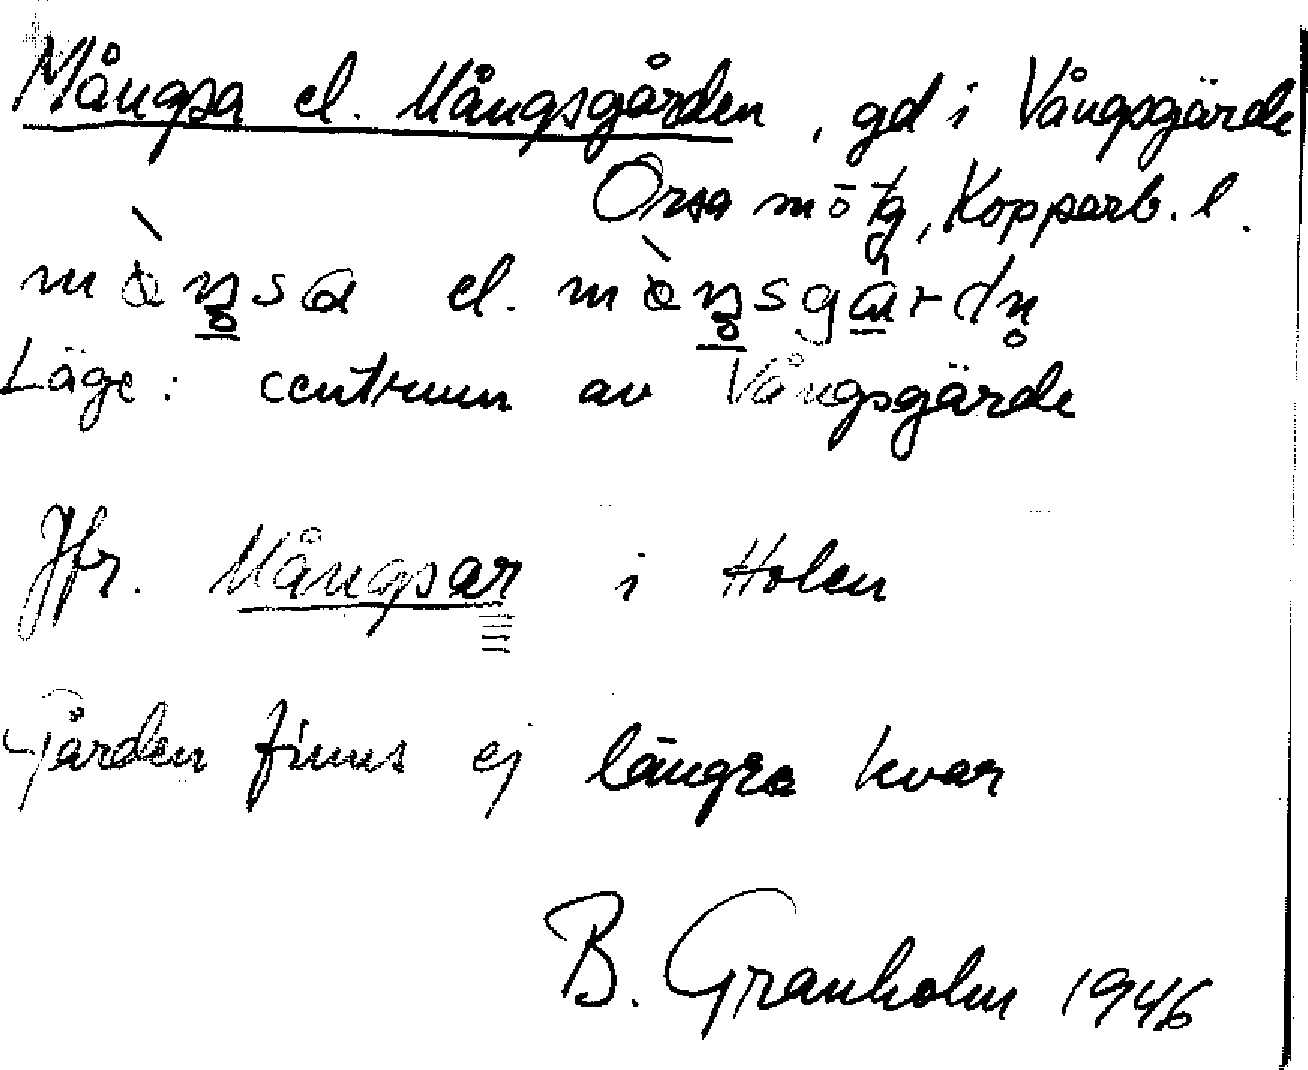 Mångsa el. Mångsgården, gd i Vångsgärde
Orsa Kopparb. l.
el.
Läge: centrum av Vångsgärde
Jfr. Mångsar i Holen
Gården finns ej längre kvar
B. Granholm 1946